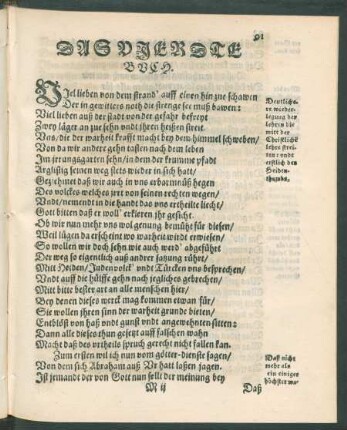 91
DAS VJERDTE
BVCH.
VJel lieben von dem strand' auff einen hin zue schawen
Der in gewitters noth die strenge see muß bawen:
Viel lieben auß der stadt von der gefahr befreyt
Zwey läger an zue sehn vndt ihren heißen streit.
Vns/ die der warheit krafft macht bey dem himmel schweben/
Von da wir andere gehn tasten nach dem leben
Im irrungsgarten sehn/ in dem der krumme pfadt
Arglistig seinen weg stets wieder in sich hatt/
Geziehmet daß wir auch in vns erbarmnüß hegen
Des volckes welches irrt von seinen rechten wegen/
Vndt/ nemendt in die handt das vns ertheilte liecht/
Gott bitten daß er woll' erkleren ihr gesicht.
Ob wir nun mehr vns wol genung bemüht für diesen/
Weil lügen da erscheint wo warheit wirdt erwiesen/
So wollen wir doch sehn wie auch werd' abgeführt
Der weg so eigentlich auß andrer satzung rührt/
Mitt Heiden/ Jüdenvolck' vndt Türcken vns besprechen/
Vndt auff die hülffe gehn nach jegliches gebrechen/
Mitt bitte bester art an alle menschen hier/
Bey denen dieses werck mag kommen etwan für/
Sie wollen ihren sinn der warheit gründe bieten/
Entblößt von haß vndt gunst vndt angewehnten sitten:
Dann alle dieses thun gesetzt auff falschen wahn
Macht daß des vrtheils spruch gerecht nicht fallen kan.
Zum ersten wil ich nun vom götter-dienste sagen/
Von dem sich Abraham auß Vr hatt lassen jagen.
Ist jemandt der von Gott nun sellt der meinung bey
M ij
Daß
Deutliche-
re wieder-
legung der
lehren die
mitt der
Christliche
lehre strei-
ten: vndt
erstlich des
Heiden-
thumbs.
Daß nicht
mehr als
ein einiger
höchster wa-